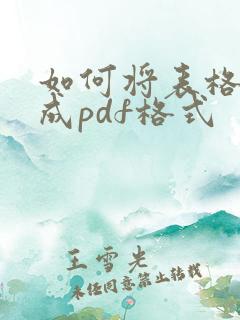 如何将表格
成pdf格式
王雪光
未经同意禁止转载